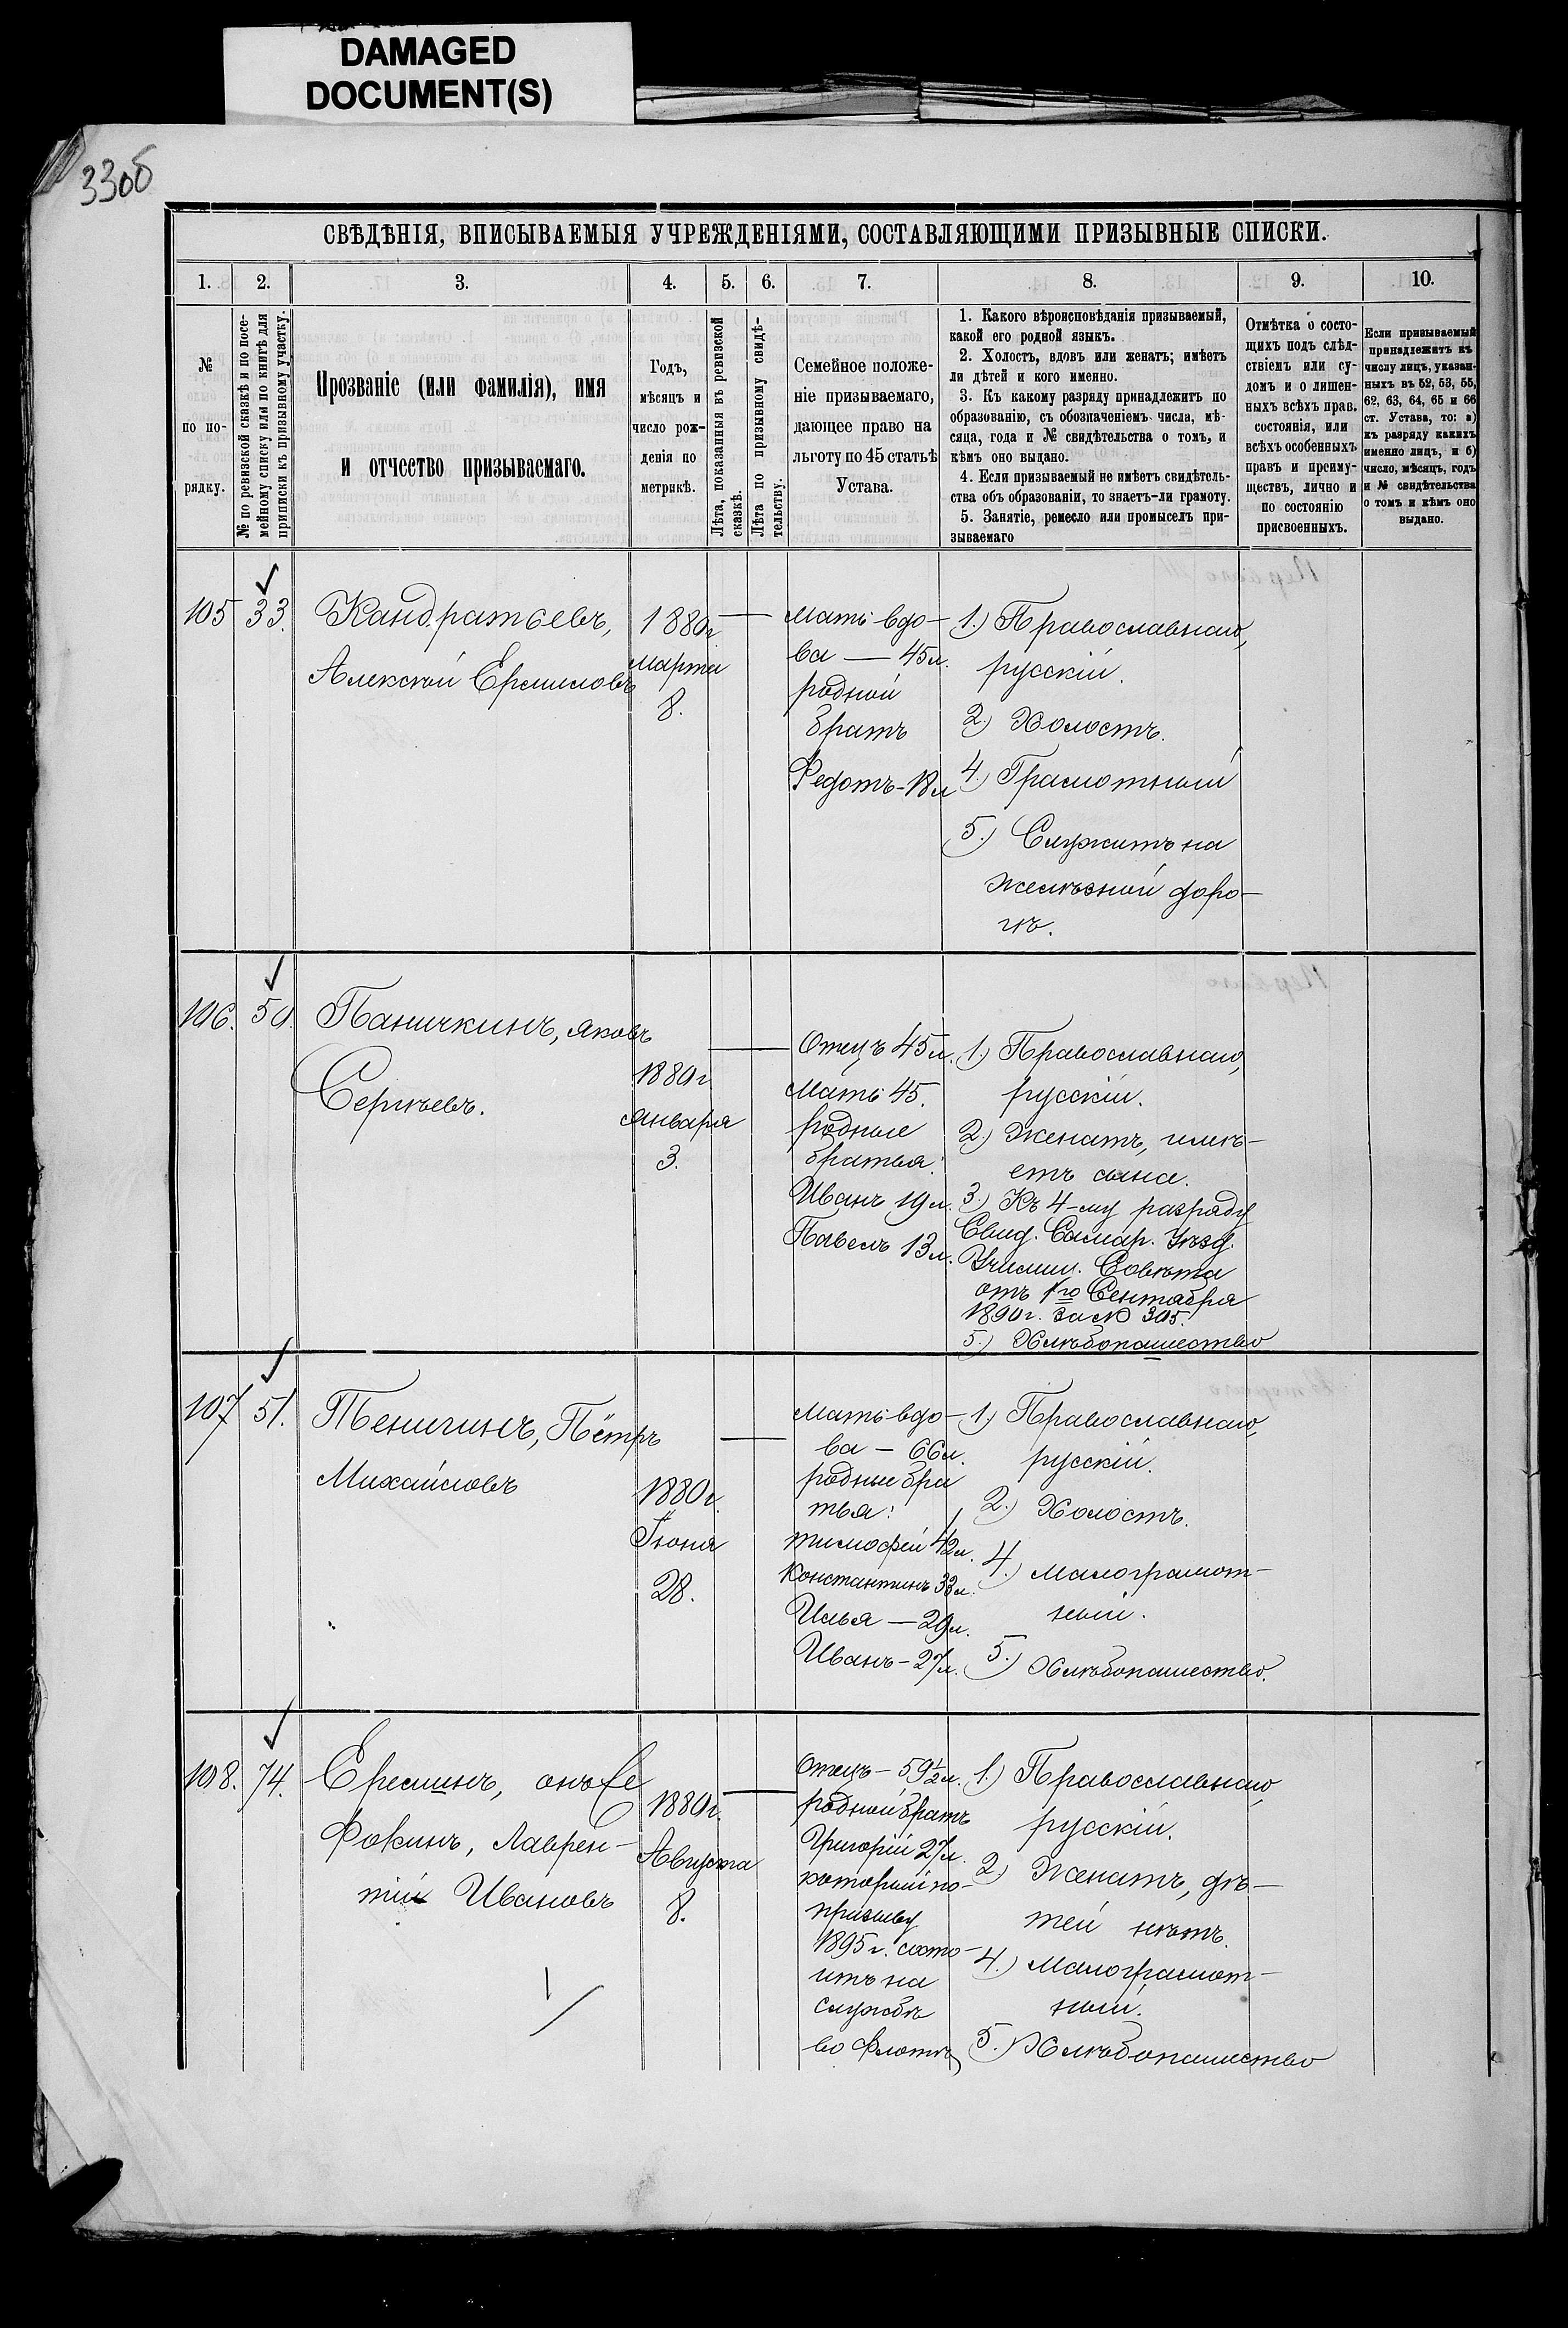 DAMAGED
DOCUMENT(S)
33об
СВѢДѢНІЯ, ВПИСЫВАЕМЫЯ УЧРЕЖДЕНІЯМИ, СОСТАВЛЯЮЩИМИ ПРИЗЫВНЫЕ СПИСКИ.
1. 2. 3. 4. 5. 6. 7. 8. 9. 10.
№
по по-
рядку.
№ по ревизской сказкѣ и по посе-
мейному списку или по книгѣ для
приписки къ призывному участку.
Прозваніе (или фамилія), имя
и отчество призываемаго.
Годъ,
мѣсяцъ и
число рож-
денія по
метрикѣ.
Лѣта, показанныя въ ревизской
сказкѣ.
Лѣта по призывному свидѣ-
тельству.
Семейное положе-
ніе призываемаго,
дающее право на
льготу по 45 статьѣ
Устава.
1. Какого вѣроисповѣданія призываемый,
какой его родной языкъ.
2. Холостъ, вдовъ или женатъ; имѣетъ
ли дѣтей и кого именно.
3. Къ какому разряду принадлежитъ по
образованію, съ обозначеніемъ числа, мѣ-
сяца, года и № свидѣтельства о томъ, и
кѣмъ оно выдано.
4. Если призываемый не имѣетъ свидѣтель-
ства объ образованіи, то знаетъ-ли грамоту.
5. Занятіе, ремесло или промыселъ при-
зываемаго
Отмѣтка о состо-
щихъ подъ слѣд-
ствіемъ или су-
домъ и о лишен-
ныхъ всѣхъ прав.
состоянія, или
всѣхъ особенныхъ
правъ и преиму-
ществъ, лично и
по состоянію
присвоенныхъ.
Если призываемый
принадлежитъ къ
числу лицъ, указан-
ныхъ въ 52, 53, 55,
62, 63, 64, 65 и 66
ст. Устава, то: а)
къ разряду какихъ
именно лицъ, и б)
число, мѣсяцъ, годъ
и № свидѣтельства
о томъ и кѣмъ оно
выдано.
105 33.
Кандратьевъ,
Алексѣй Ермиловъ
1880г.
марта
8.
Мать вдо-
ва — 45л.
родной
братъ
Федотъ-18л
1.) Православнаго,
русскій.
2.) Холостъ.
4.) Грамотный
5.) Служитъ на
желѣзной доро-
гѣ.
106. 50.
Паничкинъ, Яковъ
Сергѣевъ.
1880г
Января
3.
Отецъ 45л.
Мать 45.
родные
братья:
Иванъ 19л.
Павелъ 13л.
1.) Православнаго,
русскій.
2.) Женатъ, имѣ-
етъ сына.
3.) Къ 4-му разряду
Свид. Самар. Уѣзд.
Училищ. Совѣта
отъ 1го Сентября
1890г. за № 305.
5.) Хлѣбопашество
107 51.
Теничинъ, Пётръ
Михайловъ
1880г.
Іюня
28.
Мать вдо-
ва — 66л.
родные бра
тья:
Тимофей 42л.
Константинъ 33л.
Илья — 29л.
Иванъ - 27л.
1.) Православнаго,
русскій.
2.) Холостъ.
4.) Малограмот-
ный.
5.) Хлѣбопашество.
108. 74.
Еремин, онъ же
Фокинъ, Лаврен-
тій Ивановъ
1880г.
Августа
8.
Отецъ - 59½л.
родной братъ
Григорій 27л.
который по-
призыву
1895г. состо-
итъ на
службѣ
во Флотѣ
1.) Православнаго,
русскій.
2.) Женатъ, дѣ-
тей нѣтъ.
4.) Малограмот-
ный.
5.) Хлѣбопашество